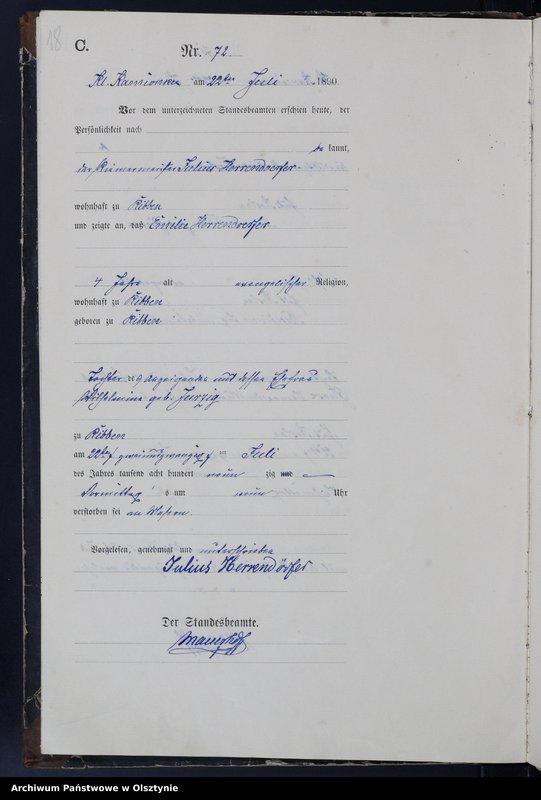 18
C.
Nr. 72.
Kl. Kamionken am 22ten Juli 1890.
Vor dem unterzeichneten Standesbeamten erschien heute, der
Persönlichkeit nach
be kannt,
der Riemermeister Julius Herrendoerfer
wohnhaft zu Ribben
und zeigte an, daß Emilie Herrendoerfer
4 Jahre alt evangelischer Religion,
wohnhaft zu Ribben
geboren zu Ribben
Tochter des Anzeigenden und dessen Ehefrau
Wilhelmine geb. Jurzig
zu Ribben
am 22ten zweiundzwanzigst en Juli
des Jahres tausend acht hundert neun zig und
Vormittag s um neun Uhr
verstorben sei an Masern.
Vorgelesen, genehmigt und unterschrieben
Julius Herrendörfer
Der Standesbeamte.
Archiwum Państwowe w Olsztynie